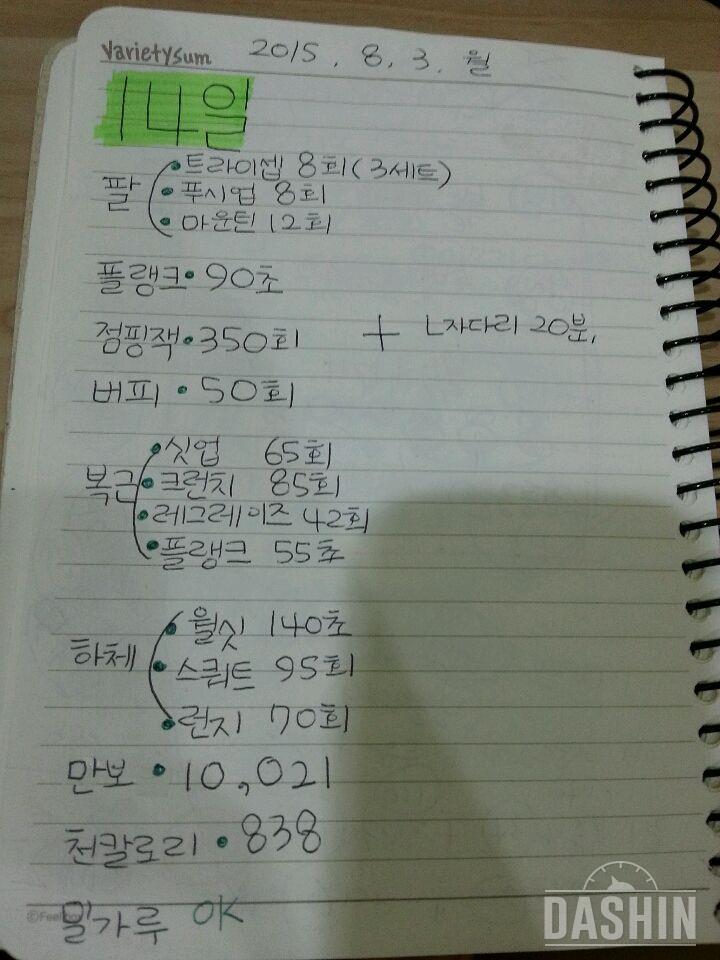 Varietysum 2015. 8. 3. 월
14일
팔 • 트라이셉 8회(3세트)
• 푸시업 8회
• 마운틴 12회
플랭크 • 90초
점핑잭 • 350회 + L자다리 20분,
버피 • 50회
복근 • 싯업 65회
• 크런치 85회
• 레그레이즈 42회
• 플랭크 55초
하체 • 월싯 140초
• 스쿼트 95회
• 런지 70회
만보 • 10,021
천칼로리 • 838
밀가루 OK
DASHIN